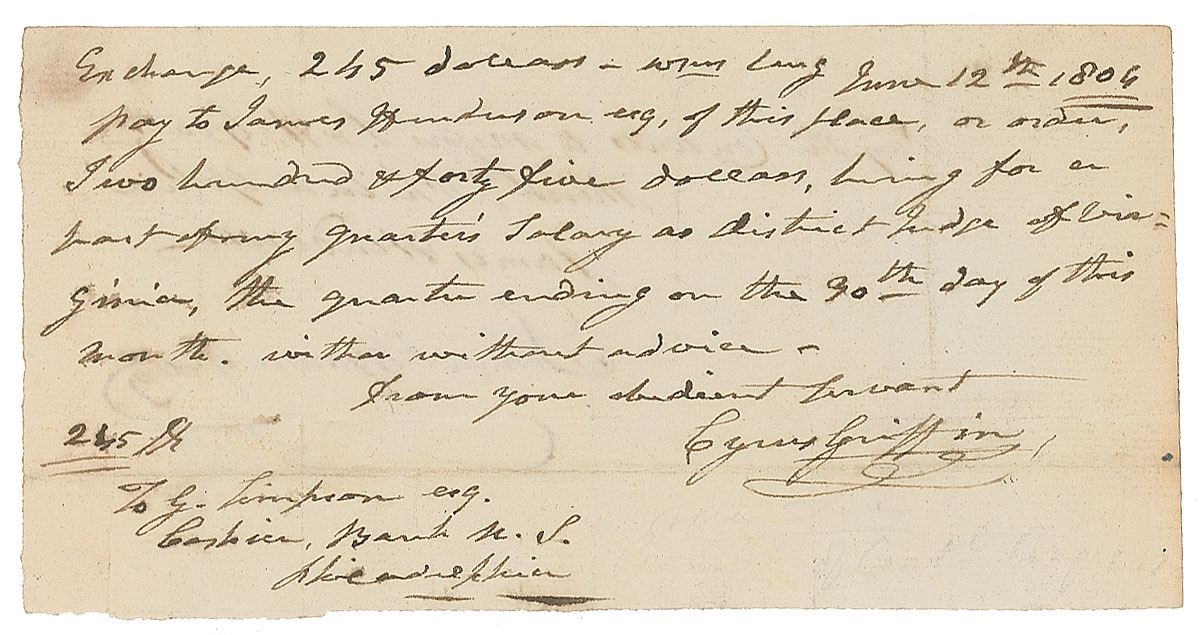 Exchange, 245 dollars – Wms burg June 12th 1804
pay to James Henderson esq, of this place, or order,
Two hundred & forty five dollars, being for a
part of my quarter's Salary as District Judge of Vir=
ginia, the quarter ending on the 30th day of this
month. with or without advice –
from your obedient Servant
245 Cyrus Griffin,
To G. Simpson esq.
Cashier, Bank U. S.
philadelphia